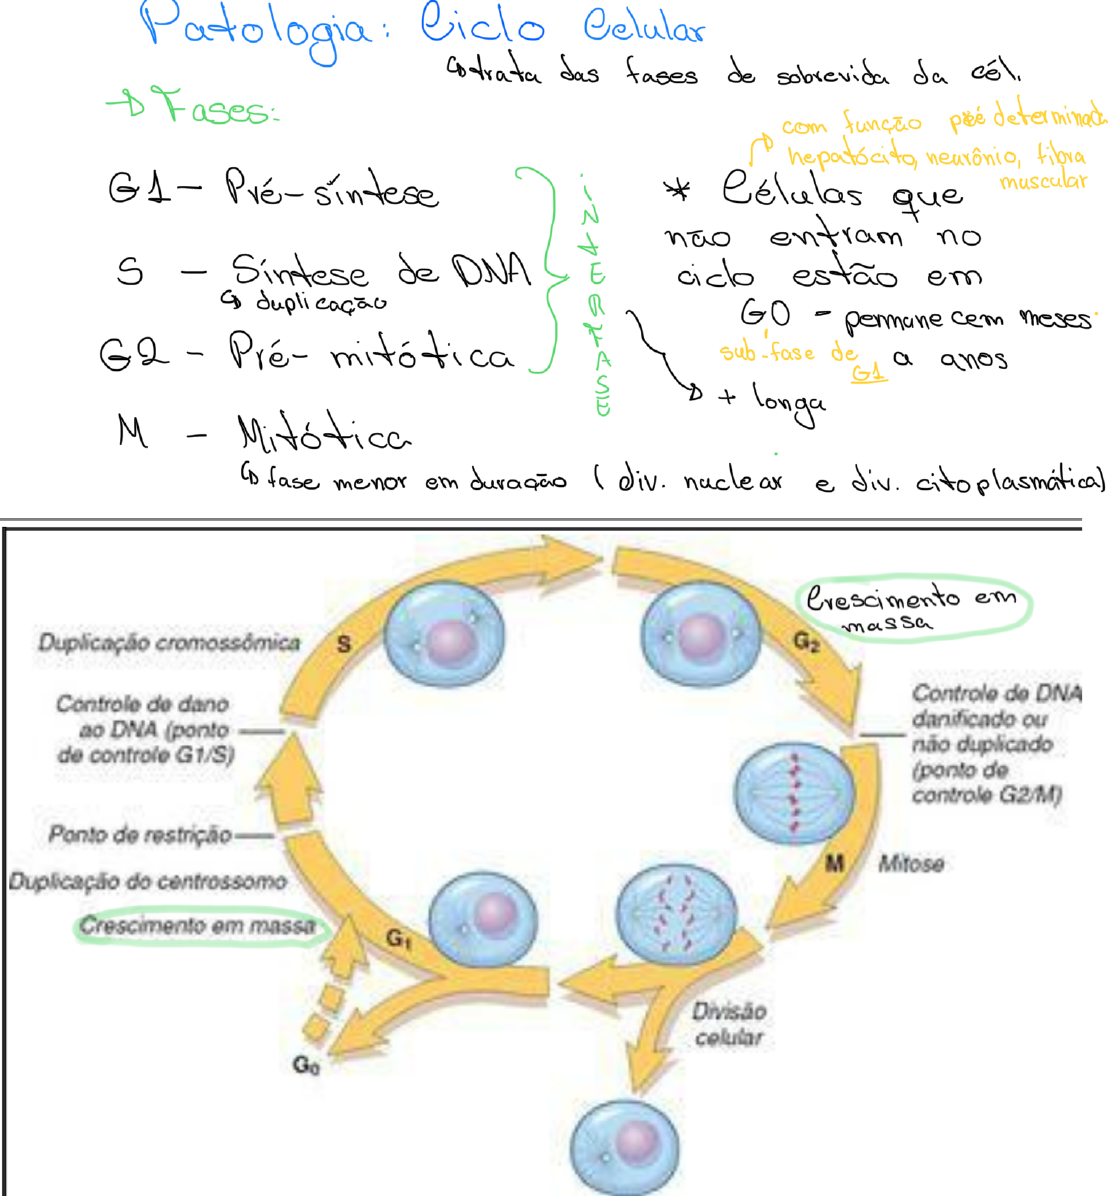 Patologia: Ciclo Celular
trata das fases de sobrevida da cél.
Fases:
com função pré determinada
hepatócito, neurônio, fibra
muscular
G1 - Pré-síntese
S - Síntese de DNA
duplicação
G2 - Pré-mitótica
M - Mitótica
fase menor em duração (div. nuclear e div. citoplasmática)
INTERFASE
+ longa
* Células que
não entram no
ciclo estão em
G0 - permanecem meses
a anos
sub-fase de
G1
Crescimento em
massa
Duplicação cromossômica
S
G2
Controle de dano
ao DNA (ponto
de controle G1/S)
Controle de DNA
danificado ou
não duplicado
(ponto de
controle G2/M)
Ponto de restrição
Duplicação do centrossomo
Crescimento em massa
G1
M
Mitose
Divisão
celular
G0